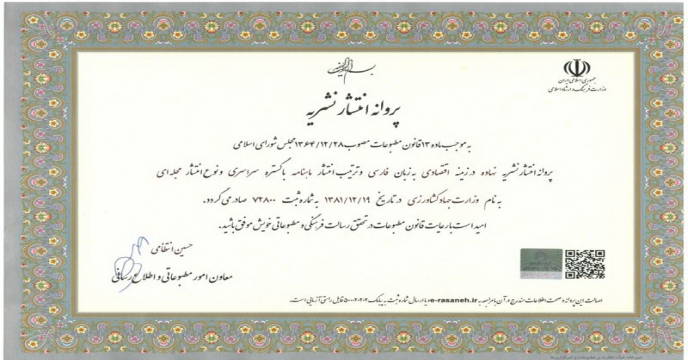 جمهوری اسلامی ایران
وزارت فرهنگ و ارشاد اسلامی
پروانه انتشار نشریه
به موجب ماده ۱۳ قانون مطبوعات مصوب ۱۳۶۴/۱۲/۲۸ مجلس شورای اسلامی
پروانه انتشار نشریه نهاده در زمینه اقتصادی به زبان فارسی و ترتیب انتشار ماهنامه با گستره سراسری و نوع انتشار مجله ای
به نام وزارت جهاد کشاورزی در تاریخ ۱۳۸۱/۱۲/۱۹ به شماره ثبت ۷۲۸۰۰ صادر می گردد.
امید است با رعایت قانون مطبوعات در تحقق رسالت فرهنگی و مطبوعاتی خویش موفق باشید.
حسین انتظامی
معاون امور مطبوعاتی و اطلاع رسانی
اصالت این پروانه و صحت اطلاعات مندرج در آن با مراجعه به e-rasaneh.ir و یا ارسال شماره ثبت به پیامک ۵۰۰۰۲۰۲۰۲ قابل راستی آزمایی است.